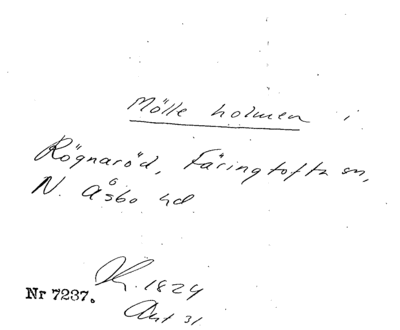 Mölle holmen i
Rögnaröd, Färingtofta sn,
N. Åsbo hd
K. 1824
Nr 7237.
Akt 31